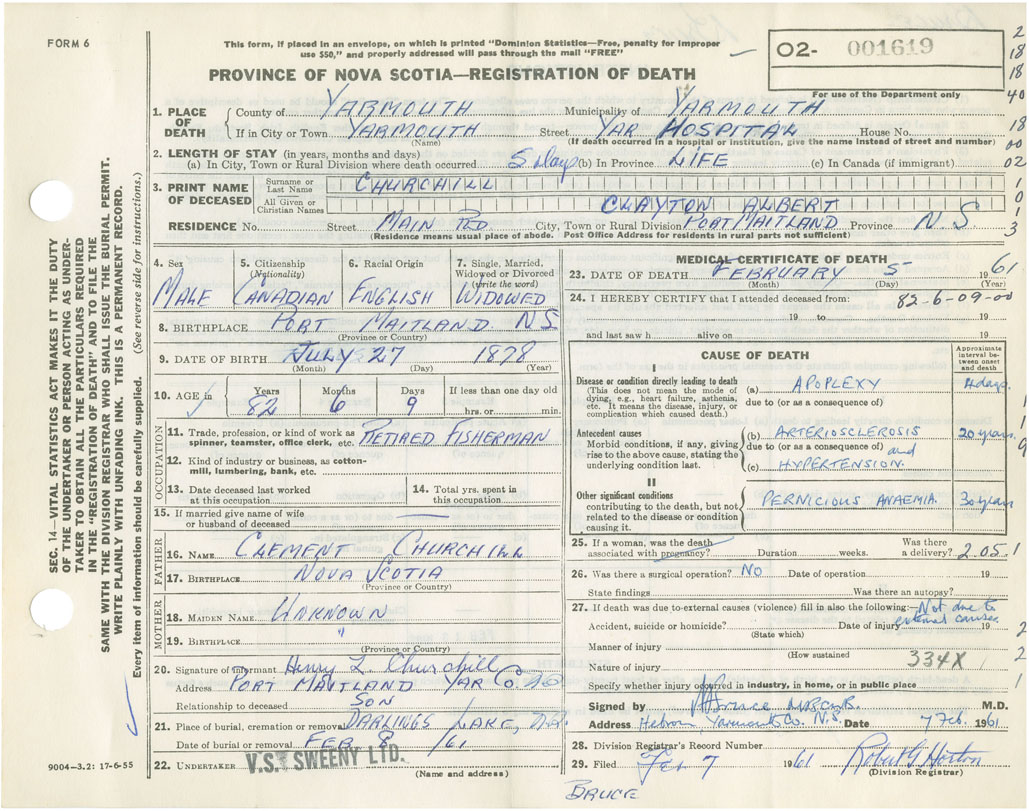 FORM 6
This form, if placed in an envelope, on which is printed "Dominion Statistics—Free, penalty for improper
use $50," and properly addressed will pass through the mail "FREE"
O2- 001619
For use of the Department only
PROVINCE OF NOVA SCOTIA—REGISTRATION OF DEATH
1. PLACE OF DEATH
County of YARMOUTH Municipality of YARMOUTH
If in City or Town YARMOUTH Street YAR HOSPITAL House No.
(Name) (If death occurred in a hospital or institution, give the name instead of street and number)
2. LENGTH OF STAY (in years, months and days)
(a) In City, Town or Rural Division where death occurred 5 days (b) In Province LIFE (c) In Canada (if immigrant)
3. PRINT NAME OF DECEASED
Surname or Last Name CHURCHILL
All Given or Christian Names CLAYTON ALBERT
RESIDENCE No. Street MAIN RD City, Town or Rural Division PORT MAITLAND Province N.S
(Residence means usual place of abode. Post Office Address for residents in rural parts not sufficient)
4. Sex MALE
5. Citizenship (Nationality) CANADIAN
6. Racial Origin ENGLISH
7. Single, Married, Widowed or Divorced (write the word) WIDOWED
8. BIRTHPLACE PORT MAITLAND N.S
(Province or Country)
9. DATE OF BIRTH JULY 27 1878
(Month) (Day) (Year)
10. AGE in Years 82 Months 6 Days 9 If less than one day old
hrs. or min.
OCCUPATION
11. Trade, profession, or kind of work as spinner, teamster, office clerk, etc. RETIRED FISHERMAN
12. Kind of industry or business, as cotton-mill, lumbering, bank, etc.
13. Date deceased last worked at this occupation
14. Total yrs. spent in this occupation
15. If married give name of wife or husband of deceased
FATHER
16. NAME CLEMENT CHURCHILL
17. BIRTHPLACE NOVA SCOTIA
(Province or Country)
MOTHER
18. MAIDEN NAME UNKNOWN
19. BIRTHPLACE "
(Province or Country)
20. Signature of informant Henry L. Churchill
Address PORT MAITLAND YAR Co. NS
Relationship to deceased SON
21. Place of burial, cremation or removal DARLINGS LAKE,
Date of burial or removal FEB 8 /61
22. UNDERTAKER V.S. SWEENY LTD.
(Name and address)
9004—3.2: 17-6-55
MEDICAL CERTIFICATE OF DEATH
23. DATE OF DEATH FEBRUARY 5 1961
(Month) (Day) (Year)
24. I HEREBY CERTIFY that I attended deceased from: 82-6-09-00
19 to 19
and last saw h alive on 19
CAUSE OF DEATH
Approximate interval between onset and death
I
Disease or condition directly leading to death
(This does not mean the mode of dying, e.g., heart failure, asthenia, etc. It means the disease, injury, or complication which caused death.)
(a) APOPLEXY 4 days.
due to (or as a consequence of)
Antecedent causes
Morbid conditions, if any, giving rise to the above cause, stating the underlying condition last.
(b) ARTERIOSCLEROSIS 20 years.
due to (or as a consequence of) and
(c) HYPERTENSION.
II
Other significant conditions
contributing to the death, but not related to the disease or condition causing it.
PERNICIOUS ANAEMIA. 30 years
25. If a woman, was the death associated with pregnancy? Duration weeks. Was there a delivery? 2.05 1
26. Was there a surgical operation? NO Date of operation 19
State findings Was there an autopsy?
27. If death was due to external causes (violence) fill in also the following:— Not due to
Accident, suicide or homicide? Date of injury external causes 19
(State which)
Manner of injury
(How sustained
Nature of injury 334X
Specify whether injury occurred in industry, in home, or in public place
Signed by M.D.
Address Hebron Yarmouth Co. N.S. Date 7 Feb. 1961
28. Division Registrar's Record Number
29. Filed Feb 7 1961 Robert G Horton
(Division Registrar)
BRUCE
SEC. 14—VITAL STATISTICS ACT MAKES IT THE DUTY
OF THE UNDERTAKER OR PERSON ACTING AS UNDER-
TAKER TO OBTAIN ALL THE PARTICULARS REQUIRED
IN THE "REGISTRATION OF DEATH" AND TO FILE THE
SAME WITH THE DIVISION REGISTRAR WHO SHALL ISSUE THE BURIAL PERMIT.
WRITE PLAINLY WITH UNFADING INK. THIS IS A PERMANENT RECORD.
Every item of information should be carefully supplied. (See reverse side for instructions.)
2
18
18
40
18
00
02
1
0
1
3
1
1
9
2
2
1